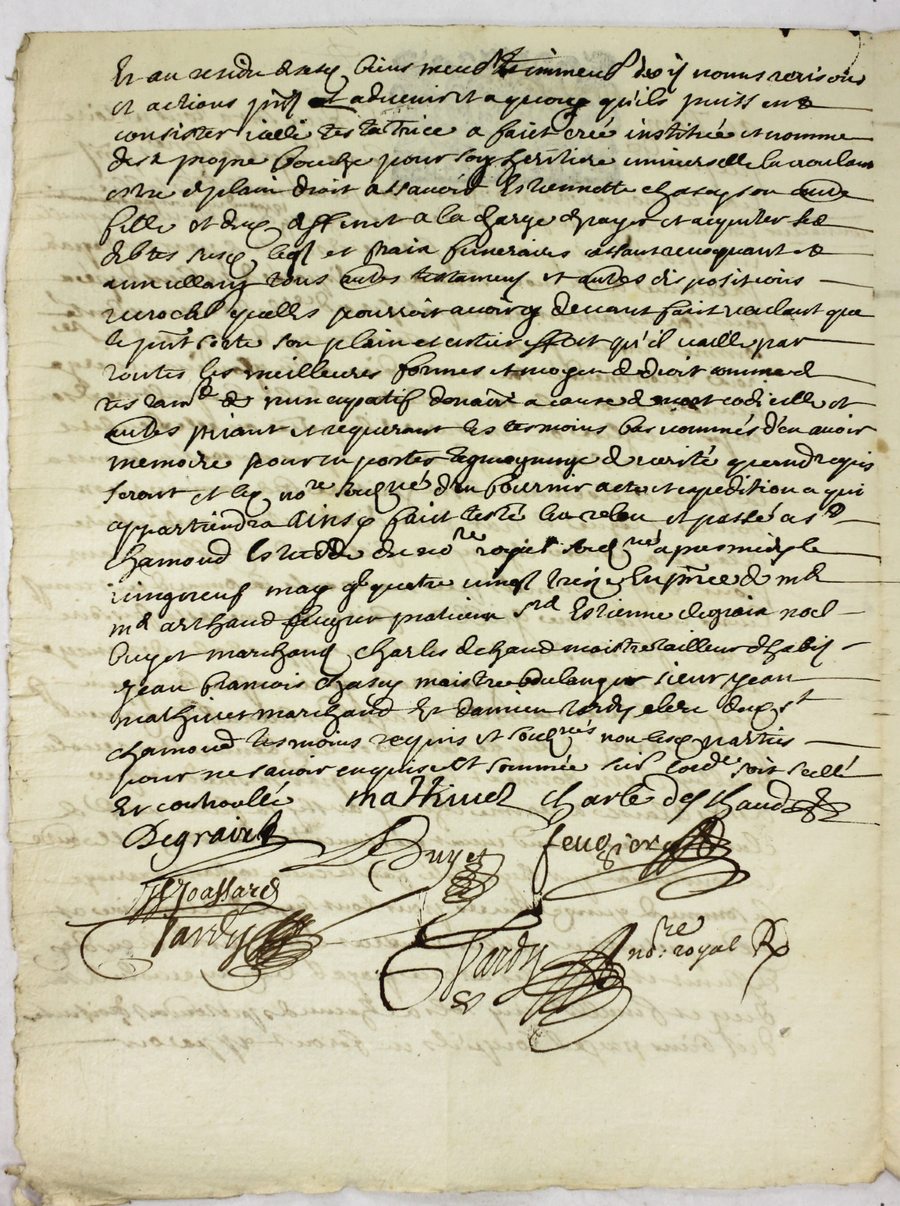 Et au residu de ses biens meubl et immeub droi noms raisons
et actions pnts et advenir et a quoy qu'ils puissent
consister icelle testatrice a fait creé instituée et nomme
de sa propre bouche pour son heritiere universelle la voulant
estre de plain droit assavoir Estiennette chasson autre
fille et a la charge de payer et acquitter
debtes legs et frais funeraires cassant revoquant et
annullant tous autres testamens et autres dispositions
qu'elle pourroit avoir cy devant fait voulant que
le pnt sorte son plain et entier effect qu'il vaille par
toutes les meilleures formes et moyen de droit comme de
testamt de nuncupatif donaon a cause de mort codicille et
autres priant et requerant les tesmoins bas nommés d'en avoir
memoire pour en porter tesmoynage de verité quand requis
seront et le nore soubsigné d'en fournir acte et expedition a qui
appartiendra ainsy fait testé leu releu et passé a St
chamond estude du nore royal soubsigné apres midy le
vingt neuf may gbc quatre vingt treize En pnce de mr
me arthaud feugier praticien sr Estienne degraix noel
buyet marchand charles dechaud maistre tailleur d'habis
jean francois maistre boulanger sieur jean
mathivet marchand Et damien tardy clerc dud St
chamond tesmoins requis et soubsignés non les parties
pour ne savoir enquise et sommée soit scellé
Et controllé mathivet charle deschaud
Degraix Buyet feugier
Joassard
tardy
Tardy nore royal R